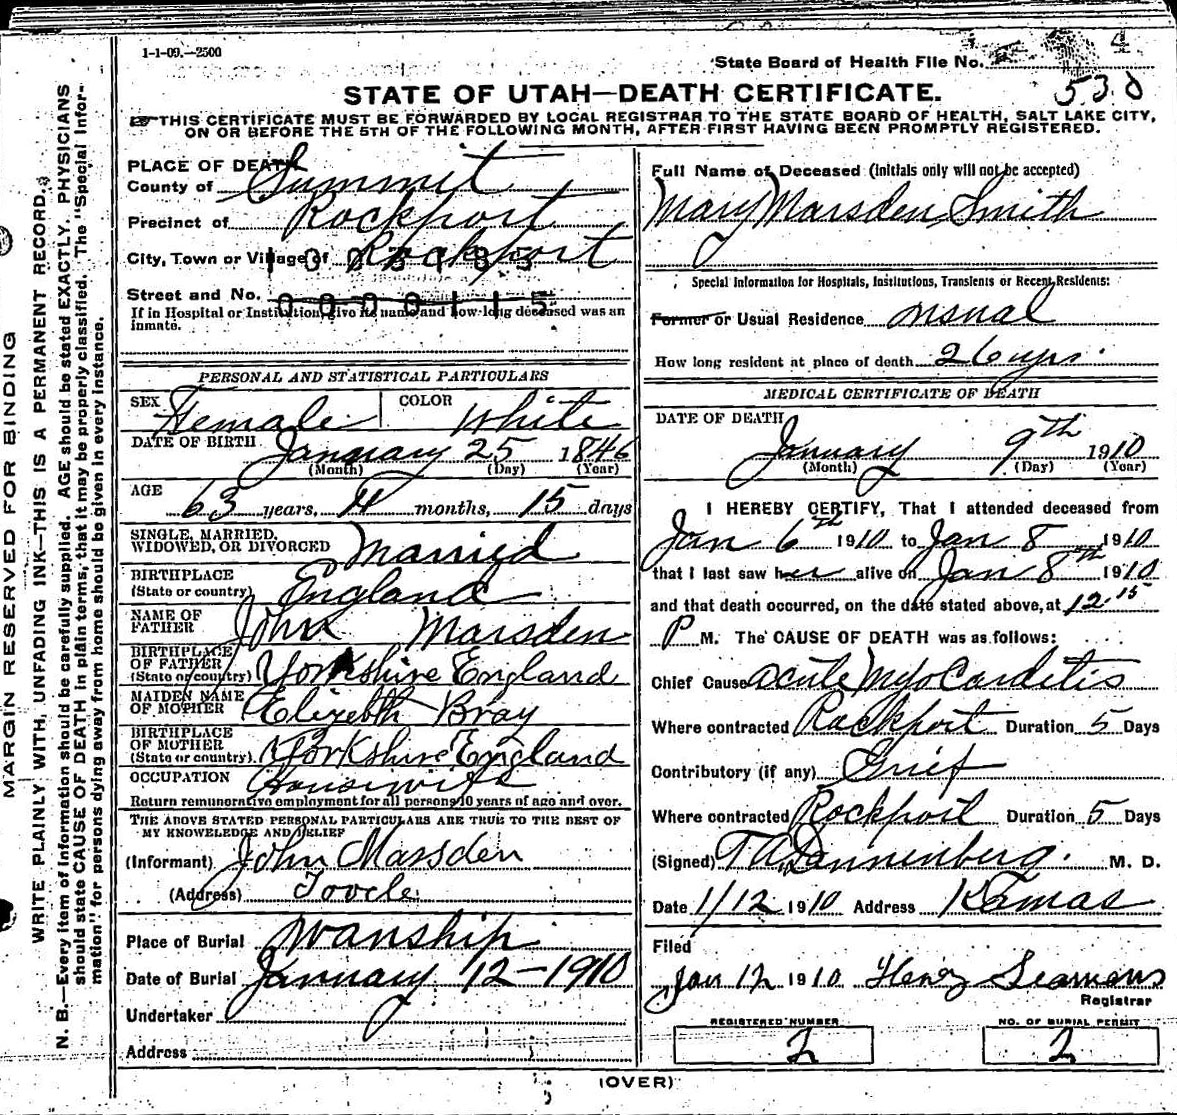 1-1-09.—2500
State Board of Health File No.
4
530
STATE OF UTAH—DEATH CERTIFICATE.
THIS CERTIFICATE MUST BE FORWARDED BY LOCAL REGISTRAR TO THE STATE BOARD OF HEALTH, SALT LAKE CITY,
ON OR BEFORE THE 5TH OF THE FOLLOWING MONTH, AFTER FIRST HAVING BEEN PROMPTLY REGISTERED.
MARGIN RESERVED FOR BINDING
WRITE PLAINLY WITH, UNFADING INK—THIS IS A PERMANENT RECORD.
N. B.—Every item of information should be carefully supplied. AGE should be stated EXACTLY. PHYSICIANS
should state CAUSE OF DEATH in plain terms, that it may be properly classified. The "Special Infor-
mation" for persons dying away from home should be given in every instance.
PLACE OF DEATH
County of Summit
Precinct of Rockport
City, Town or Village of Rockport
Street and No.
If in Hospital or Institution, give its name and how long deceased was an
inmate.
PERSONAL AND STATISTICAL PARTICULARS
SEX Female COLOR White
DATE OF BIRTH January 25 1846
(Month) (Day) (Year)
AGE
63 years, 11 months, 15 days
SINGLE, MARRIED,
WIDOWED, OR DIVORCED Married
BIRTHPLACE
(State or country) England
NAME OF
FATHER John Marsden
BIRTHPLACE
OF FATHER
(State or country) Yorkshire England
MAIDEN NAME
OF MOTHER Elizebth Bray
BIRTHPLACE
OF MOTHER
(State or country) Yorkshire England
OCCUPATION Housewife
Return remunerative employment for all persons 10 years of age and over.
THE ABOVE STATED PERSONAL PARTICULARS ARE TRUE TO THE BEST OF
MY KNOWELEDGE AND BELIEF
(Informant) John Marsden
(Address) Tooele
Place of Burial Wanship
Date of Burial January 12-1910
Undertaker
Address
Full Name of Deceased (Initials only will not be accepted)
Mary Marsden Smith
Special Information for Hospitals, Institutions, Transients or Recent Residents:
Former or Usual Residence usual
How long resident at place of death 26 yrs.
MEDICAL CERTIFICATE OF DEATH
DATE OF DEATH
January 9th 1910
(Month) (Day) (Year)
I HEREBY CERTIFY, That I attended deceased from
Jan 6th 1910 to Jan 8 1910
that I last saw her alive on Jan 8th 1910
and that death occurred, on the date stated above, at 12.15
P M. The CAUSE OF DEATH was as follows:
Chief Cause acute Myocarditis
Where contracted Rockport Duration 5 Days
Contributory (if any) Grief
Where contracted Rockport Duration 5 Days
(Signed) Dannenberg. M. D.
Date 1/12 1910 Address Kamas
Filed
Jan 12 1910 Henry Seamons
Registrar
REGISTERED NUMBER
2
NO. OF BURIAL PERMIT
2
(OVER)